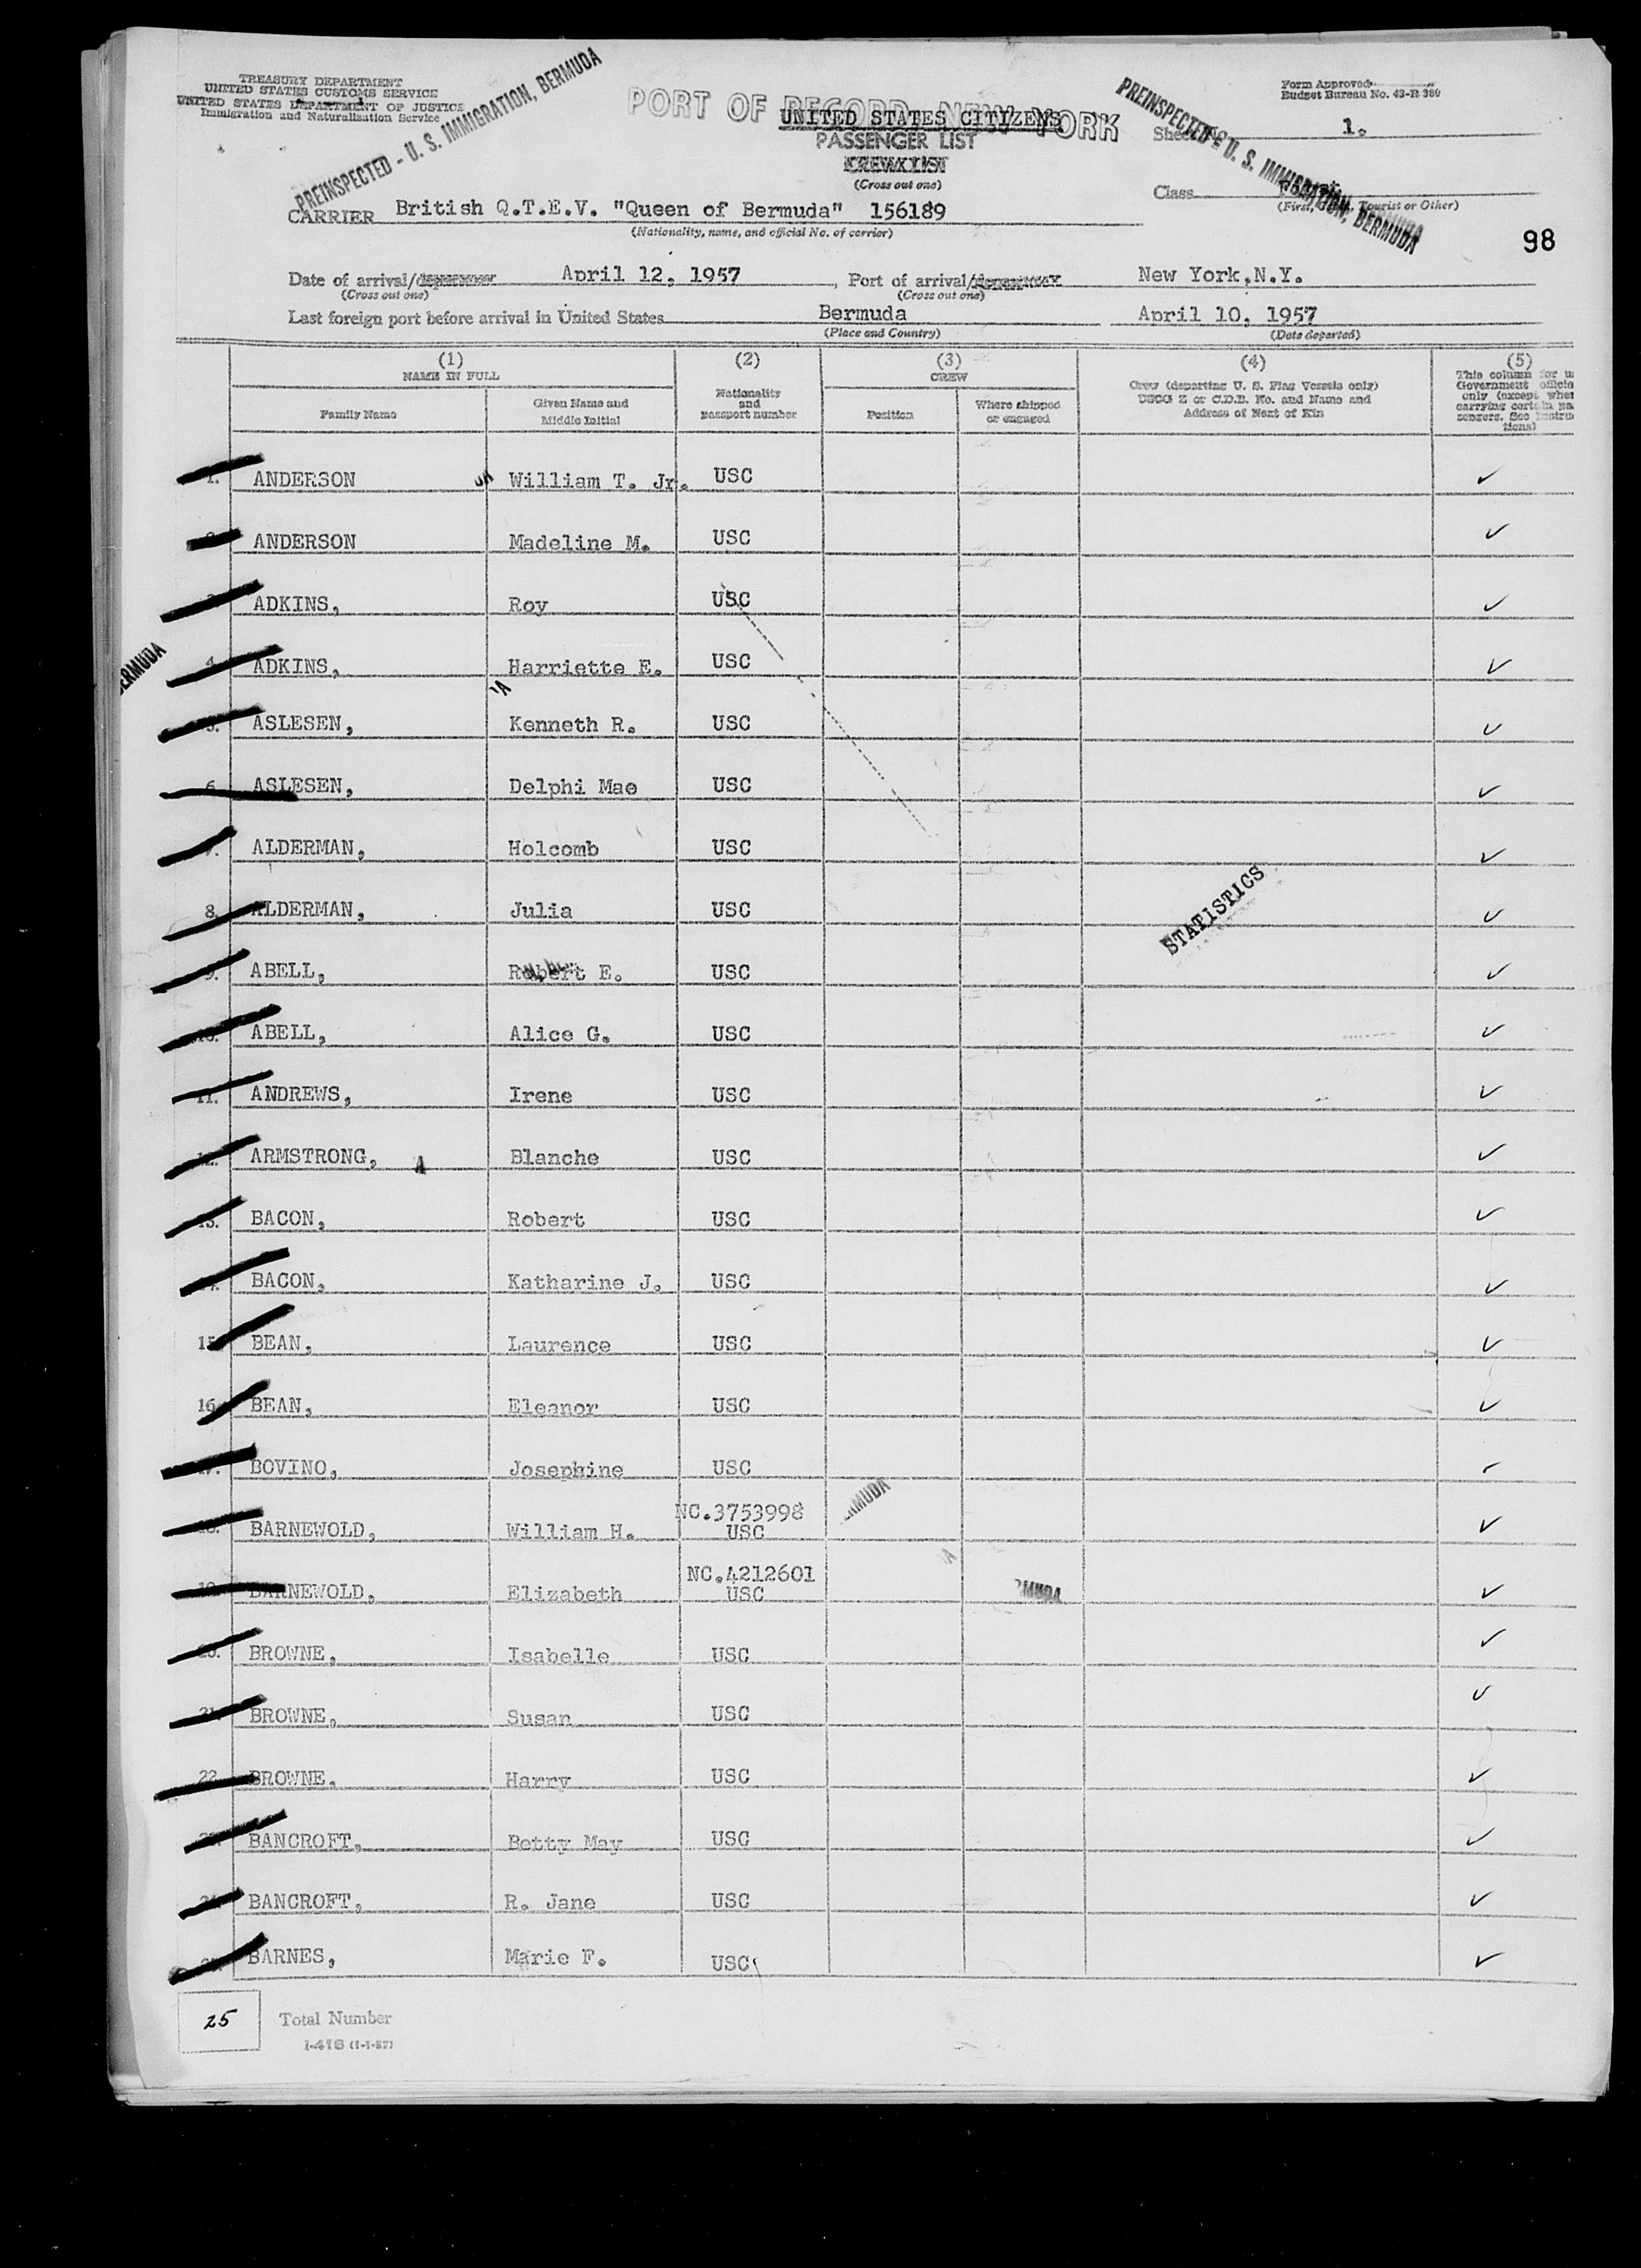 TREASURY DEPARTMENT
UNITED STATES CUSTOMS SERVICE
UNITED STATES DEPARTMENT OF JUSTICE
Immigration and Naturalization Service
PREINSPECTED - U. S. IMMIGRATION, BERMUDA
PORT OF RECORD NEW YORK
UNITED STATES CITIZENS
PASSENGER LIST
CREW LIST
(Cross out one)
PREINSPECTED - U. S. IMMIGRATION, BERMUDA
Form Approved
Budget Bureau No. 43-R 386
Sheet 1.
Class
(First, Tourist or Other)
98
CARRIER British Q.T.E.V. "Queen of Bermuda" 156189
(Nationality, name, and official No. of carrier)
Date of arrival/departure April 12, 1957, Port of arrival/departure New York,N.Y.
(Cross out one) (Cross out one)
Last foreign port before arrival in United States Bermuda April 10, 1957
(Place and Country) (Date departed)
(1) (2) (3) (4) (5)
NAME IN FULL Nationality and passport number CREW Crew (departing U. S. Flag Vessels only) USCG Z or C.D.B. No. and Name and Address of Next of Kin
This column for u
Government officia
only (except whe
carrying certain pa
sengers. See Instru
tions)
Family Name Given Name and Middle Initial Position Where shipped or engaged
1. ANDERSON William T. Jr. USC ✓
ANDERSON Madeline M. USC ✓
ADKINS, Roy USC ✓
4. ADKINS, Harriette E. USC ✓
BERMUDA
5. ASLESEN, Kenneth R. USC ✓
6. ASLESEN, Delphi Mae USC ✓
7. ALDERMAN, Holcomb USC ✓
8. ALDERMAN, Julia USC ✓
STATISTICS
9. ABELL, Robert E. USC ✓
10. ABELL, Alice G. USC ✓
11. ANDREWS, Irene USC ✓
12. ARMSTRONG, Blanche USC ✓
13. BACON, Robert USC ✓
14. BACON, Katharine J. USC ✓
15 BEAN, Laurence USC ✓
16 BEAN, Eleanor USC ✓
17. BOVINO, Josephine USC ✓
NC.3753998
18. BARNEWOLD, William H. USC ✓
RMUDA
NC.4212601
19. BARNEWOLD, Elizabeth USC ✓
RMUDA
20. BROWNE, Isabelle USC ✓
21. BROWNE, Susan USC ✓
22. BROWNE, Harry USC ✓
23. BANCROFT, Betty May USC ✓
24. BANCROFT, R. Jane USC ✓
25. BARNES, Marie F. USC ✓
25 Total Number
I-418 (1-1-57)